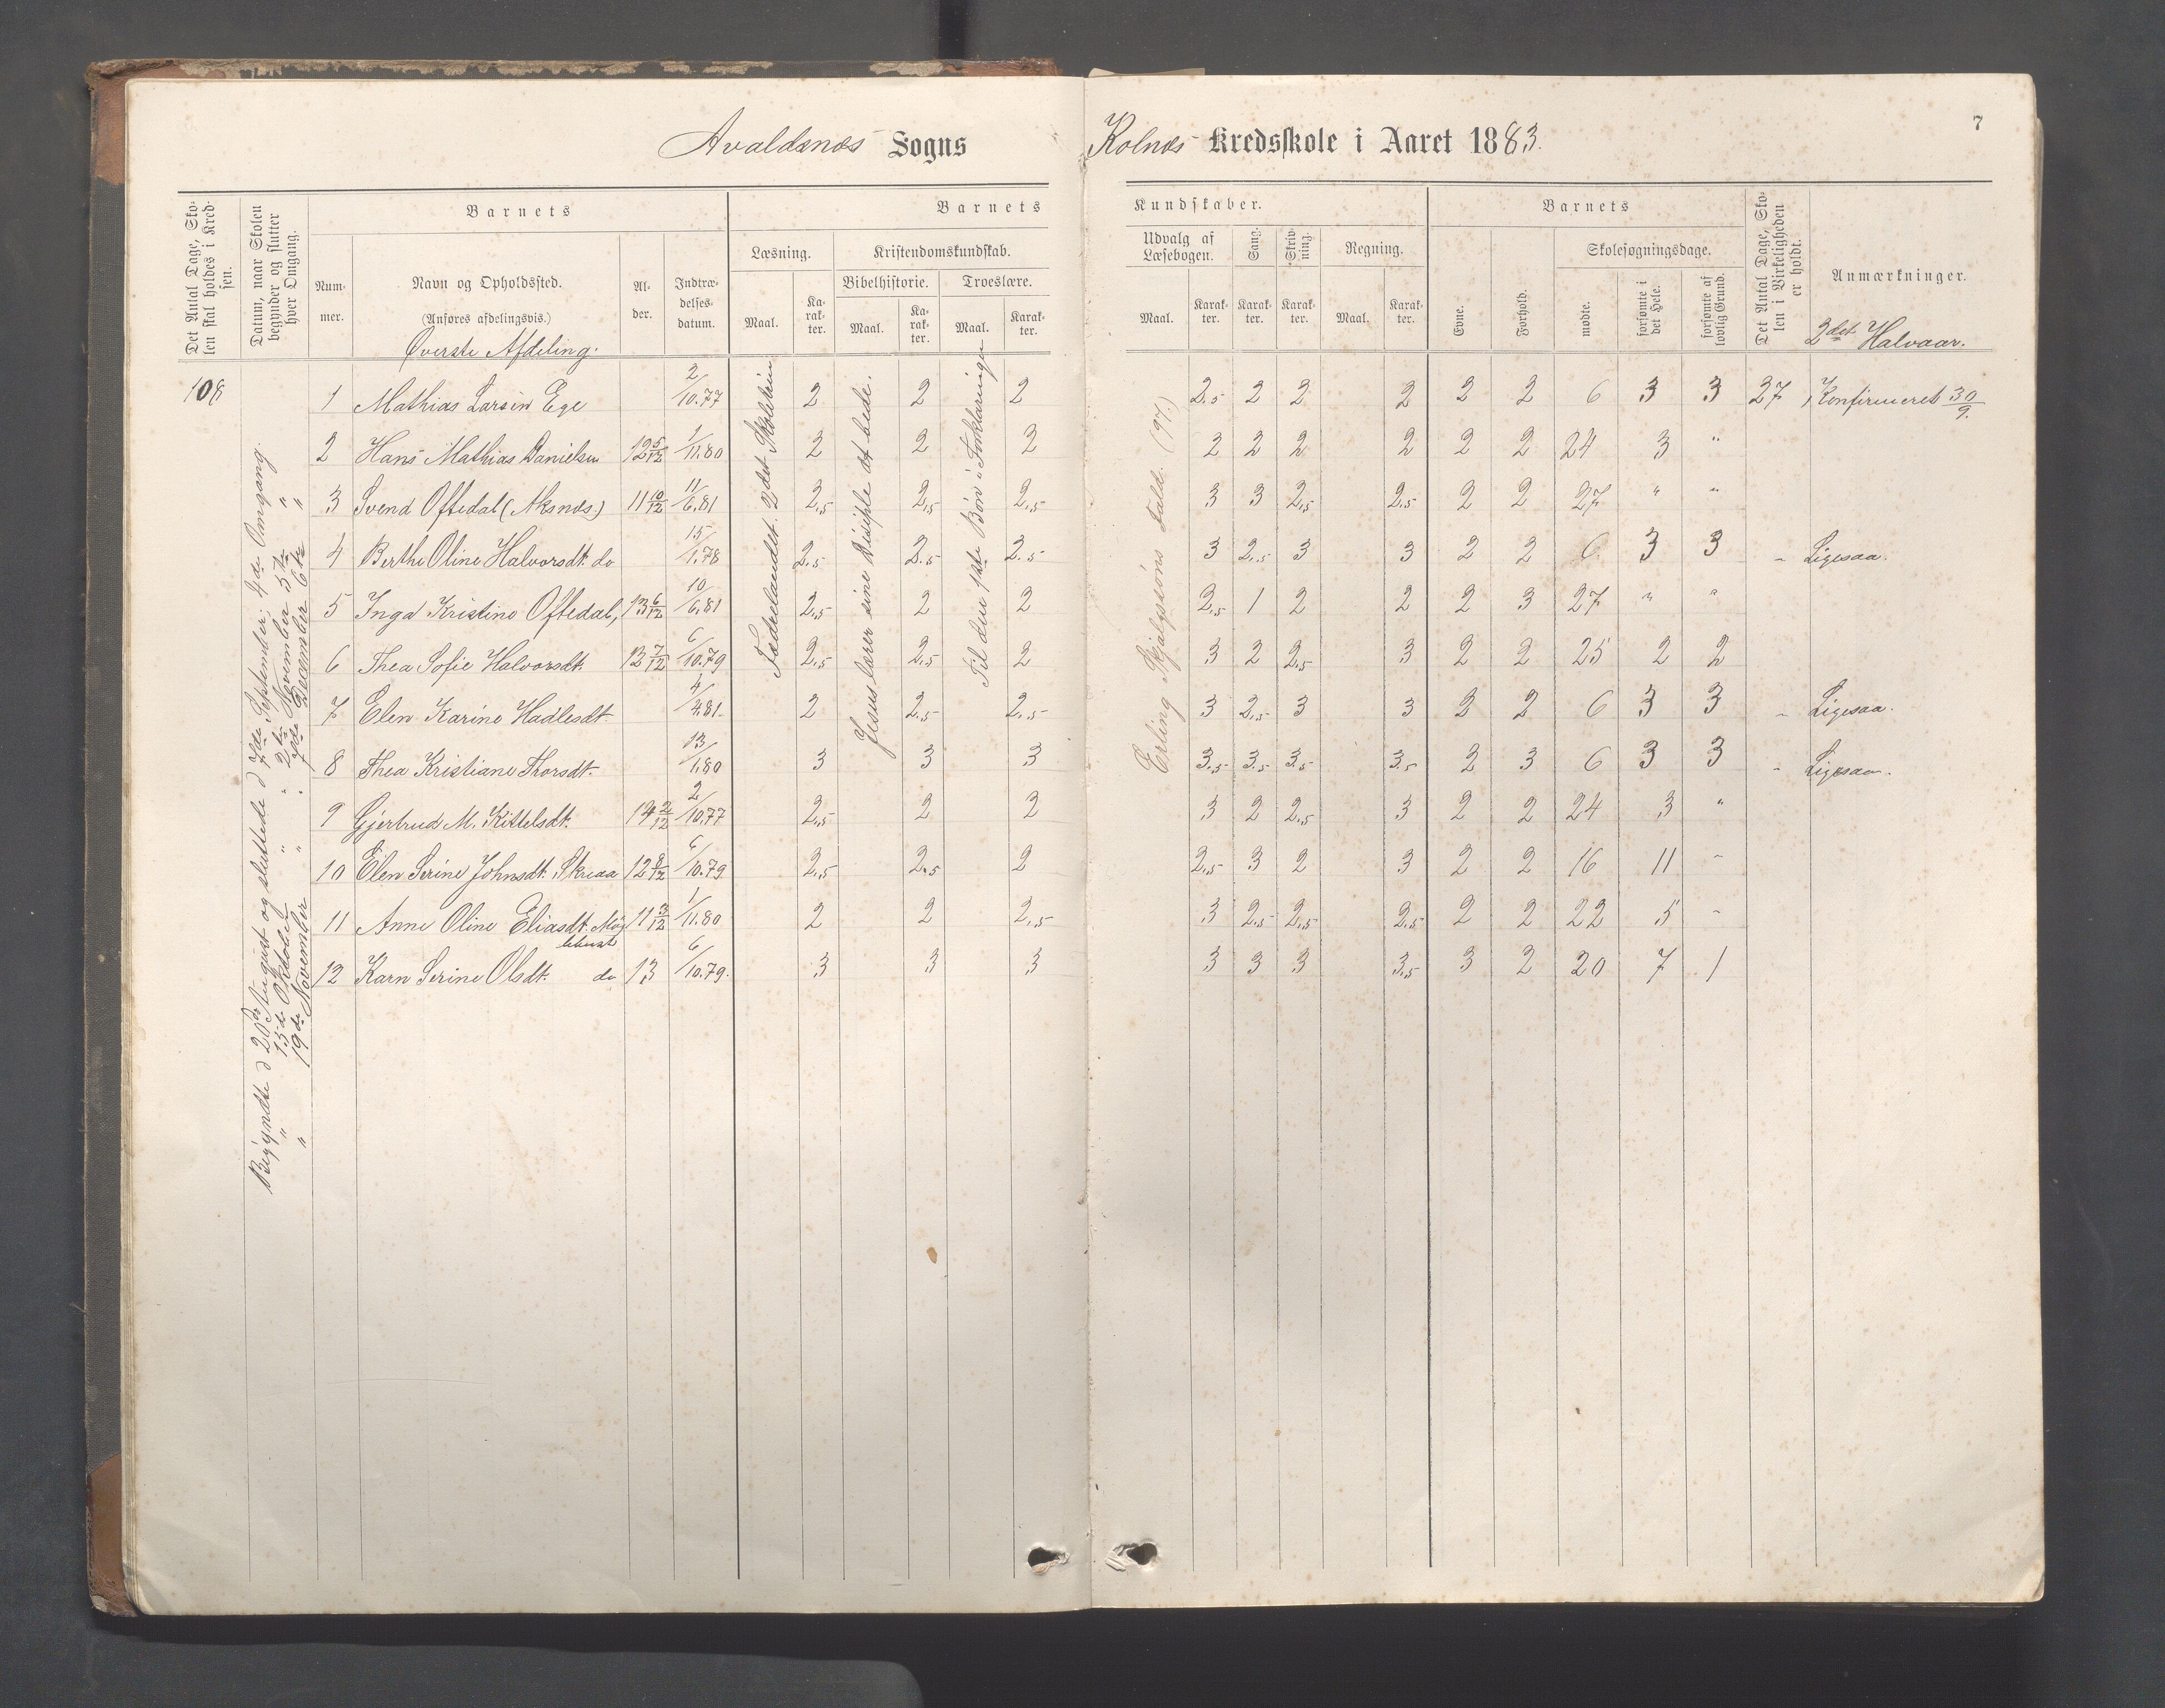 Avaldsnes Sogns
Kolnes Kredsskole i Aaret 1883.
7
Det Antal Dage, Sko-
len skal holdes i Kred-
sen.
Datum, naar Skolen
begynder og slutter
hver Omgang.
Barnets
Num-
mer.
Navn og Opholdssted.
(Anføres afdelingsvis.)
Øverste Afdeling.
Al-
der.
Indtræ-
delses-
datum.
Barnets
Læsning.
Maal.
Ka-
rak-
ter.
Kristendomskundskab.
Bibelhistorie.
Maal.
Ka-
rak-
ter.
Troeslære.
Maal.
Karak-
ter.
Kundskaber.
Udvalg af
Læsebogen.
Maal.
Karak-
ter.
Sang.
Karak-
ter.
Skriv-
ning.
Karak-
ter.
Regning.
Maal.
Karak-
ter.
Barnets
Evne.
Forhold.
Skolesøgningsdage.
mødte.
forsømte i
det Hele.
forsømte af
lovlig Grund.
Det Antal Dage, Sko-
len i Virkeligheden
er holdt.
Anmærkninger.
2det Halvaar.
108
Begyndte d 20de August og sluttede d 7de September; 4de Omgang.
" 15de Oktober " " 2den November 5te "
" 19de November " " 7de December 6te "
Fædrelandet. 2det Skoletrin
Jesus lærer sine Disciple at bede.
Til den 1ste Bøn i Forklaringen
Erling Skjalgsøns Fald. (97.)
1 Mathias Larsen Ege 2/10.77 2 2 2 2.5 2 2 2 2 2 6 3 3 27 Konfirmeret 30/9.
2 Hans Mathias Danielsen 12 5/12 1/11.80 2 2 2 2 2 2 2 2 2 24 3 "
3 Svend Oftedal (Aksnes) 11 10/12 11/6.81 2,5 2,5 2,5 3 3 2,5 2,5 2 2 27 " "
4 Berthe Oline Halvorsdt. do 15/1.78 2.5 2.5 2.5 3 2,5 3 3 2 2 6 3 3 " Ligesaa.
5 Inga Kristine Oftedal, 13 6/12 10/6.81 2,5 2 2 2,5 1 2 2 2 3 27 " "
6 Thea Sofie Halvorsdt. 12 7/12 6/10.79 2,5 2,5 2 3 2 2,5 3 2 2 25 2 2
7 Elen Karine Hadlesdt. 4/4.81. 2 2,5 2,5 3 2,5 3 3 2 2 6 3 3 " Ligesaa.
8 Thea Kristiane Thorsdt. 13/1.80 3 3 3 3,5 3,5 3,5 3,5 2 3 6 3 3 " Ligesaa.
9 Gjertrud M. Kittelsdt. 14 2/12 2/10.77 2,5 2 2 3 2 2,5 3 2 2 24 3 "
10 Elen Serine Johnsdt. Skreaa 12 8/12 6/10.79 2,5 2,5 2 2,5 3 2 3 2 2 16 11 "
11 Anne Oline Eliasdt. Møg 11 3/12 1/11.80 2 2 2,5 3 2,5 2,5 2,5 2 2 22 5 "
lebust
12 Karn Serine Olsdt. do 13 6/10.79. 3 3 3 3 3 3 3,5 3 2 20 7 1